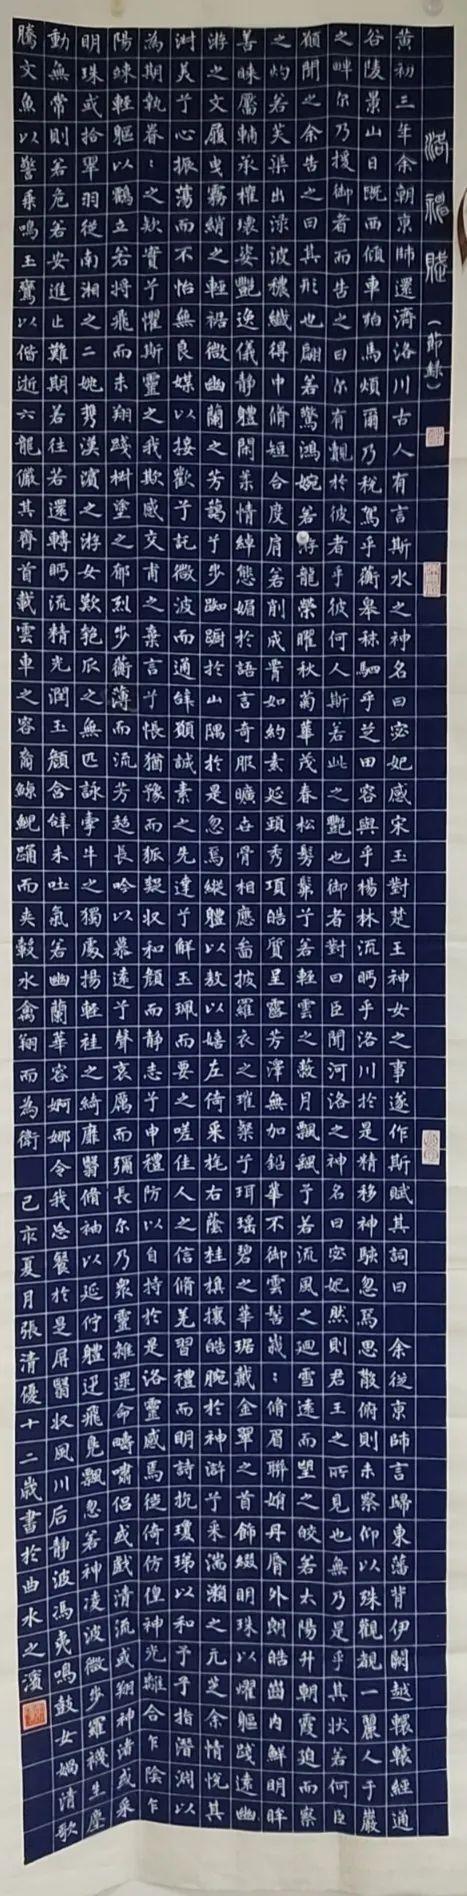 洛神賦（節錄）
黄初三年余朝京師還濟洛川古人有言斯水之神名曰宓妃感宋玉對楚王神女之事遂作斯賦其詞曰　余從京師言歸東藩背伊闕越轘轅經通
谷陵景山日既西傾車殆馬煩爾乃稅駕乎蘅皋秣駟乎芝田容與乎楊林流眄乎洛川於是精移神駭忽焉思散俯則未察仰以殊觀覩一麗人于巖
之畔尔乃援御者而告之曰尔有覿於彼者乎彼何人斯若此之艷也御者對曰臣聞河洛之神名曰宓妃然則君王之所見也無乃是乎其狀若何臣
願聞之余告之曰其形也翩若驚鴻婉若游龍榮曜秋菊華茂春松髣髴兮若輕雲之蔽月飄颻兮若流風之迴雪遠而望之皎若太陽升朝霞迫而察
之灼若芙蕖出渌波穠纖得中脩短合度肩若削成腰如約素延頸秀項皓質呈露芳澤無加鉛華不御雲髻峨：脩眉聯娟丹脣外朗皓齒内鮮明眸
善睞靨輔承權瓌姿艷逸儀静體閑柔情綽態媚於語言奇服曠世骨相應畵披羅衣之璀粲兮珥瑶碧之華琚戴金翠之首飾綴明珠以耀軀踐遠幽
游之文履曳霧綃之輕裾微幽蘭之芳藹兮步踟躕於山隅於是忽焉縱體以敖以嬉左倚采旄右蔭桂旗攘皓腕於神滸兮采湍瀨之元芝余情悦其
淑美兮心振蕩而不怡無良媒以接歡兮託微波而通辭願誠素之先達兮解玉珮而要之嗟佳人之信脩羌習禮而明詩抗瓊珶以和予兮指潛淵以
為期執眷：之欵實兮懼斯靈之我欺感交甫之棄言兮悵猶豫而狐疑收和顔而静志兮申禮防以自持於是洛靈感焉徙倚仿偟神光離合乍陰乍
陽竦輕軀以鶴立若將飛而未翔踐椒塗之郁烈步蘅薄而流芳超長吟以慕遠兮聲哀厲而彌長尔乃衆靈雜遝命疇嘯侣或戲清流或翔神渚或采
明珠或拾翠羽從南湘之二妃携漢濱之游女歎匏瓜之無匹詠牽牛之獨處揚輕袿之綺靡翳脩袖以延佇體迅飛凫飄忽若神凌波微步羅襪生塵
動無常則若危若安進止難期若往若還轉眄流精光潤玉顔含辭未吐氣若幽蘭華容婀娜令我忘餐於是屏翳收風川后静波馮夷鳴鼓女媧清歌
騰文魚以警乘鳴玉鸞以偕逝六龍儼其齊首載雲車之容裔鯨鯢踊而夾轂水禽翔而為衛　己亥夏月張清優十二歲書於曲水之濱